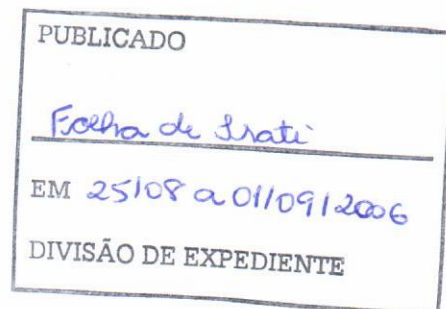 PUBLICADO
Folha de Irati
EM 25/08 a 01/09/2006
DIVISÃO DE EXPEDIENTE